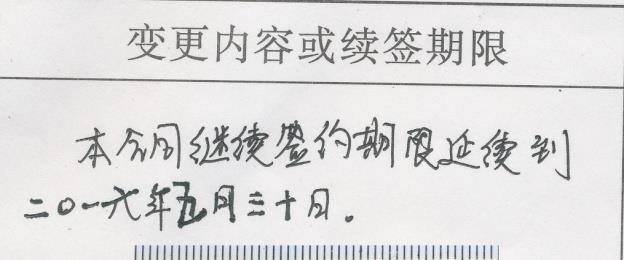 变更内容或续签期限
本合同继续签约期限延续到
二〇一六年五月三十日。